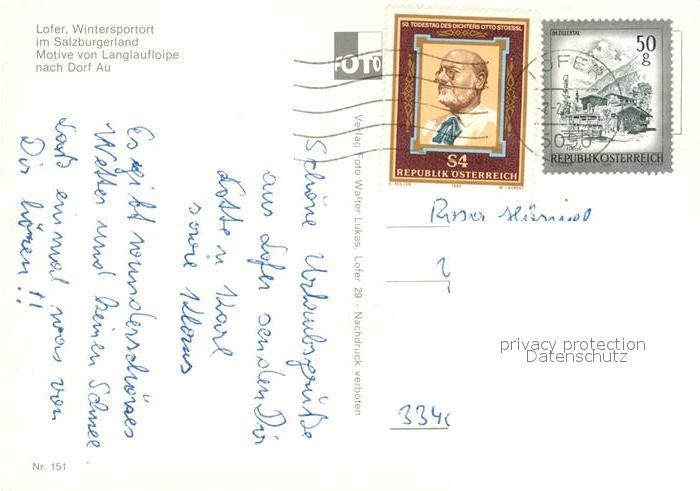 Lofer, Wintersportort
im Salzburgerland
Motive von Langlaufloipe
nach Dorf Au
FOTO
50. TODESTAG DES DICHTERS OTTO STOESSL
S4
REPUBLIK ÖSTERREICH
1986
IM ZILLERTAL
50
g
REPUBLIK ÖSTERREICH
LOFER
5090
Schöne Urlaubsgrüße
aus Lofer senden Dir
Lotte u Karl
sowie Klaus
Es gibt wunderschönes
Wetter und keinen Schnee
Laß einmal was von
Dir hören!!
Verlag Foto Walter Lukas, Lofer 29 - Nachdruck verboten
Rosa
334
privacy protection
Datenschutz
Nr. 151